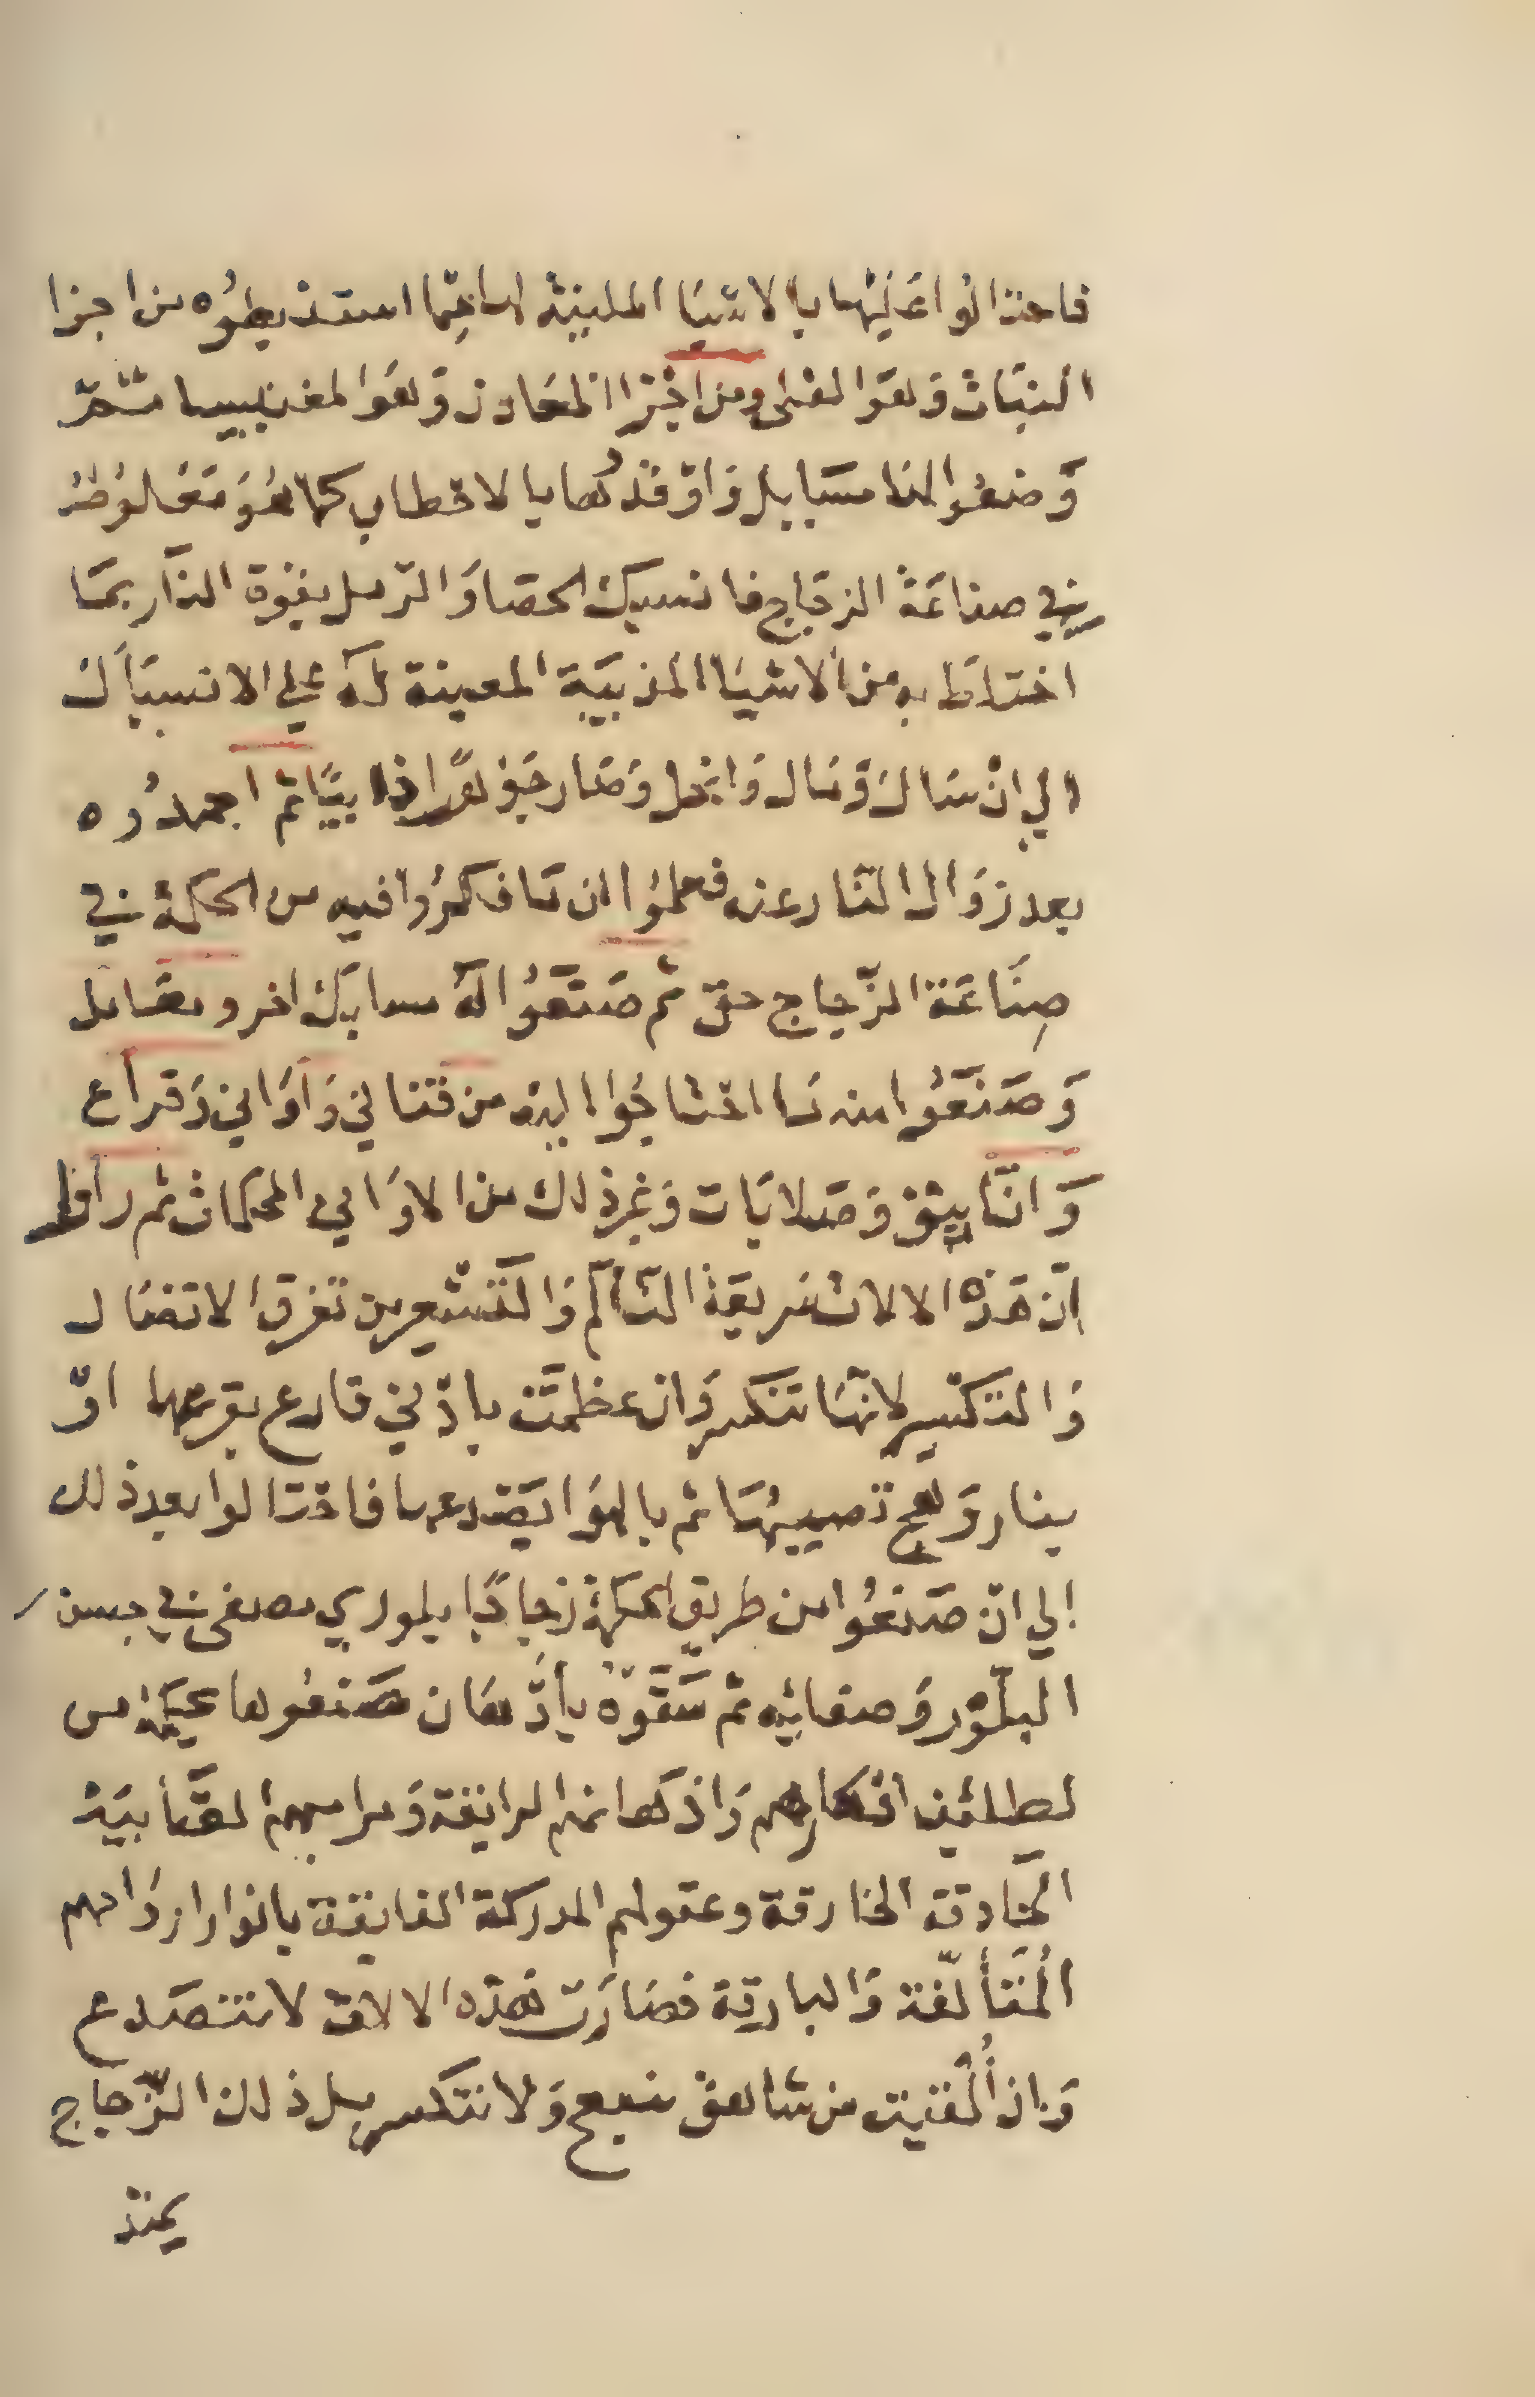 فاحتالوا عَليْها بالاشيَا الملينة لها ممّا استنبطوُه من اجزا
النبَات وَهوَ القلى ومن اجْزا المعَادن وَهوَ المغنيسيا ثمّ
وَضعُوا لهَا مسَابك وَاوْقدُهَا بالاحطاب كمَا هُوَ مَعْلومْ
في صناعَة الزجَاج فانسبك الحصَا وَالرّمل بقوة النّار بمَا
اختلَط به من الاشيَا المذيبَة المعينة لهَ علي الانسبَاك
الي انْ سَاك وَسَال وَانحل وَصَار جَوْهرًا ذايبًا ثم اجمدُوه
بعد زوَال النّار عنه فعلموُا ان مَا فكرُوا فيه من الحكمة في
صِنَاعَة الزّجاج حق ثم صَنَعُوا لهَ مسابك اخر ومعَامل
وَصَنَعُوا منه مَا احتاجُوا اليه من قنَاني وَاوَاني وَقراَع
وَانَابيق وَصَلايَات وَغير ذلك من الاوَاني المحكمات ثم راوا
انّ هَذه الالات سَريعَة التألم وَالتّشعير من تفرق الاتصَال
وَالتكسير لانهَا تنكسر وَان عظمَت بادْني قارع يقرعها اوْ
بنار وَهج تصيبُهَا ثم بالهوَا يصَدعها فاحتالوا بعد ذلك
الي انْ صَنعُوا من طريق الحكمة زجاجًا بلوري مصفى في حسن
البلّوْر وَصفائِه ثم سَقّوْهُ بادْهَان صَنعُوها بحكمة من
لطائِف افكارهم وَاذهانهم الرايقة وَمرامهم الصَّايبَة
الحَاذقة الخارقة وعقولهم المدركة الفايقة بانوار ارْوَاحهم
المُتَألّقة وَالبارقة فصَارَت هَذه الالات لا تتصَدع
وَاذ أُلْقيت من شاهق منيع وَلا تتكسر بل ذلك الزّجاج
يمتد